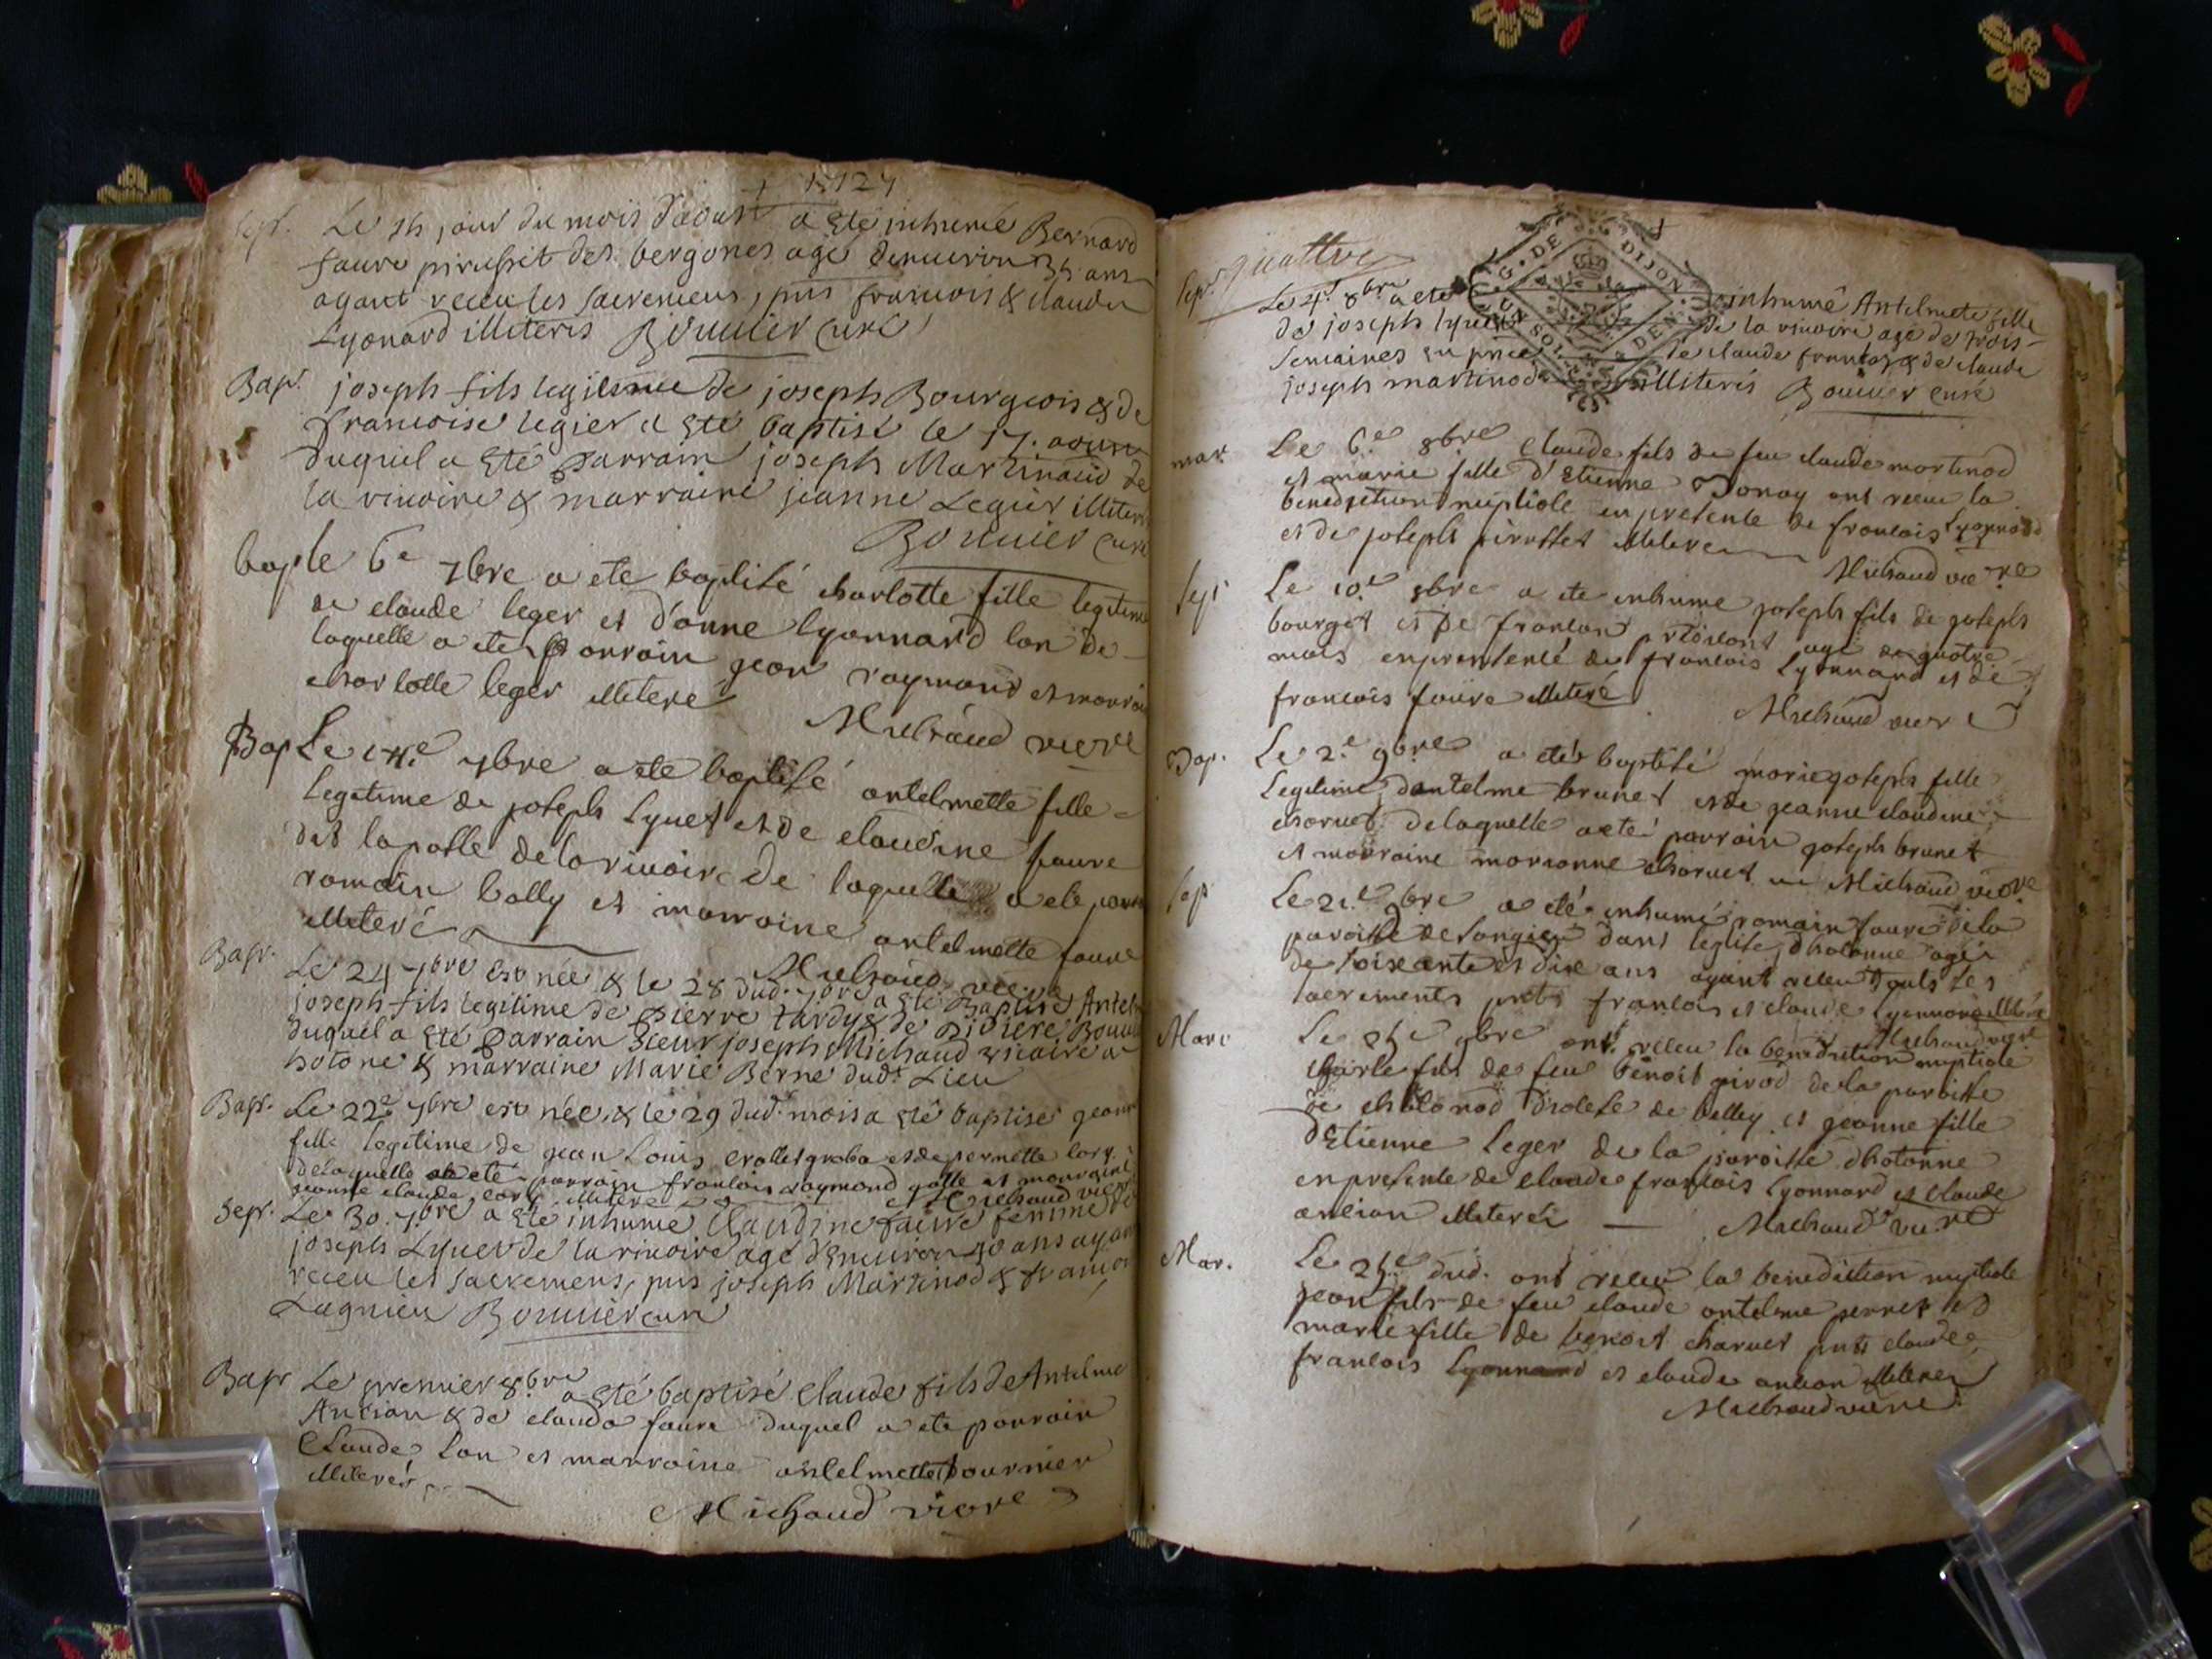 1724
Sept. Le 14 jour du mois d'aoust a Eté inhumé Bernard
faure pirusset des bergones agé denuiron 35 ans
ayant receu les sacremens, pns francois & claude
Lyonard illiteris Bouuier curé
Bapt. joseph fils legitime de joseph Bourgeois & de
francoise legier a Eté baptisé le 17. aoust
duquel a Eté Parrain joseph Martinaud de
la riuoire & marraine jeanne Legier illiteris
Bouuier curé
bap le 6e 7bre a ete baptisé charlotte fille legitime
de claude leger et d'anne lyonnard lon de
laquelle a ete parrain jean raymond et marraine
charlotte leger illiteré
Michaud vicre
Bap Le 14.e 7bre a ete baptisé antelmette fille
legitime de joseph Lyuet et de claudine faure
dit la de la riuoire de laquelle a ete parrain
romain bally et marraine antelmette faure
illiteré
Michaud vic
Bapt. Le 24 7bre est née & le 28 dud. 7bre a Eté Baptisé Antel
joseph fils legitime de Pierre tardy & de
duquel a Eté Parrain Sieur joseph Michaud vicaire a
hotone & marraine Marie Berne dudt Lieu
Bapt. Le 22e 7bre est née & le 29 dud. mois a Eté baptisé jeanne
fille legitime de jean Louis et de pernette
de laquelle a ete parrain francois raymond et marraine
jeanne claude illiteré Michaud vicre
Sept. Le 30. 7bre a Eté inhumé Claudine faure femme de
joseph Lyuet de la riuoire agé d'Enuiron 40 ans ayant
receu les sacremens, pns joseph Martinod & francois
Lagnieu Bouuier curé
Bapt Le premier 8bre a Eté baptisé Claude fils de Antelme
Ancian & de claude faure duquel a ete parrain
Claude Lon et marraine antelmette fournier
illiterés
Michaud vicre
quattre
G. DE DIJON
Sept. Le 4e 8bre a ete inhumé Antelmete fille
de joseph lyuet de la riuoire agé de trois
semaines en pnce de claude francois & de claude
joseph martinod illiterés Bouuier curé
mar. Le 6.e 8bre Claude fils de feu claude martinod
et marie fille d'Etienne Donay ont receu la
benediction nuptiale en presence de francois Lyonnard
et de joseph pirusset illitere
Michaud vicre
Sept Le 10.e 8bre a ete inhumé joseph fils de joseph
bourget et de agé de quatre
mois en presence de francois Lyonnard et de
francois faure illiteré
Michaud vicre
Bap. Le 2.e 9bre a eté baptisé mariejoseph fille
Legitime dantelme brunet et de jeanne claudine
charuet de laquelle a eté parrain joseph brunet
et marraine marianne charuet Michaud vicre
Sep Le 21.e 9bre a eté inhumé romain faure de la
paroisse de songieu dans leglise dhotonne agé
de soixante et dix ans ayant receu touts les
sacrements pnts francois et claude Lyonnard illiteré
Michaud vicre
Mari Le 25e 9bre ont receu la benediction nuptiale
charle fils de feu benoit girod de la paroisse
de diocese de belley et jeanne fille
dEtienne Leger de la paroisse dhotonne
en presence de claude francois Lyonnard et claude
ancian illiteréz
Michaud vicre
Mar. Le 25e dud. ont receu la benediction nuptiale
jean fils de feu claude antelme perret et
marie fille de benoit charuet pnts claude
francois Lyonnard et claude ancian illiteréz
Michaud vicre